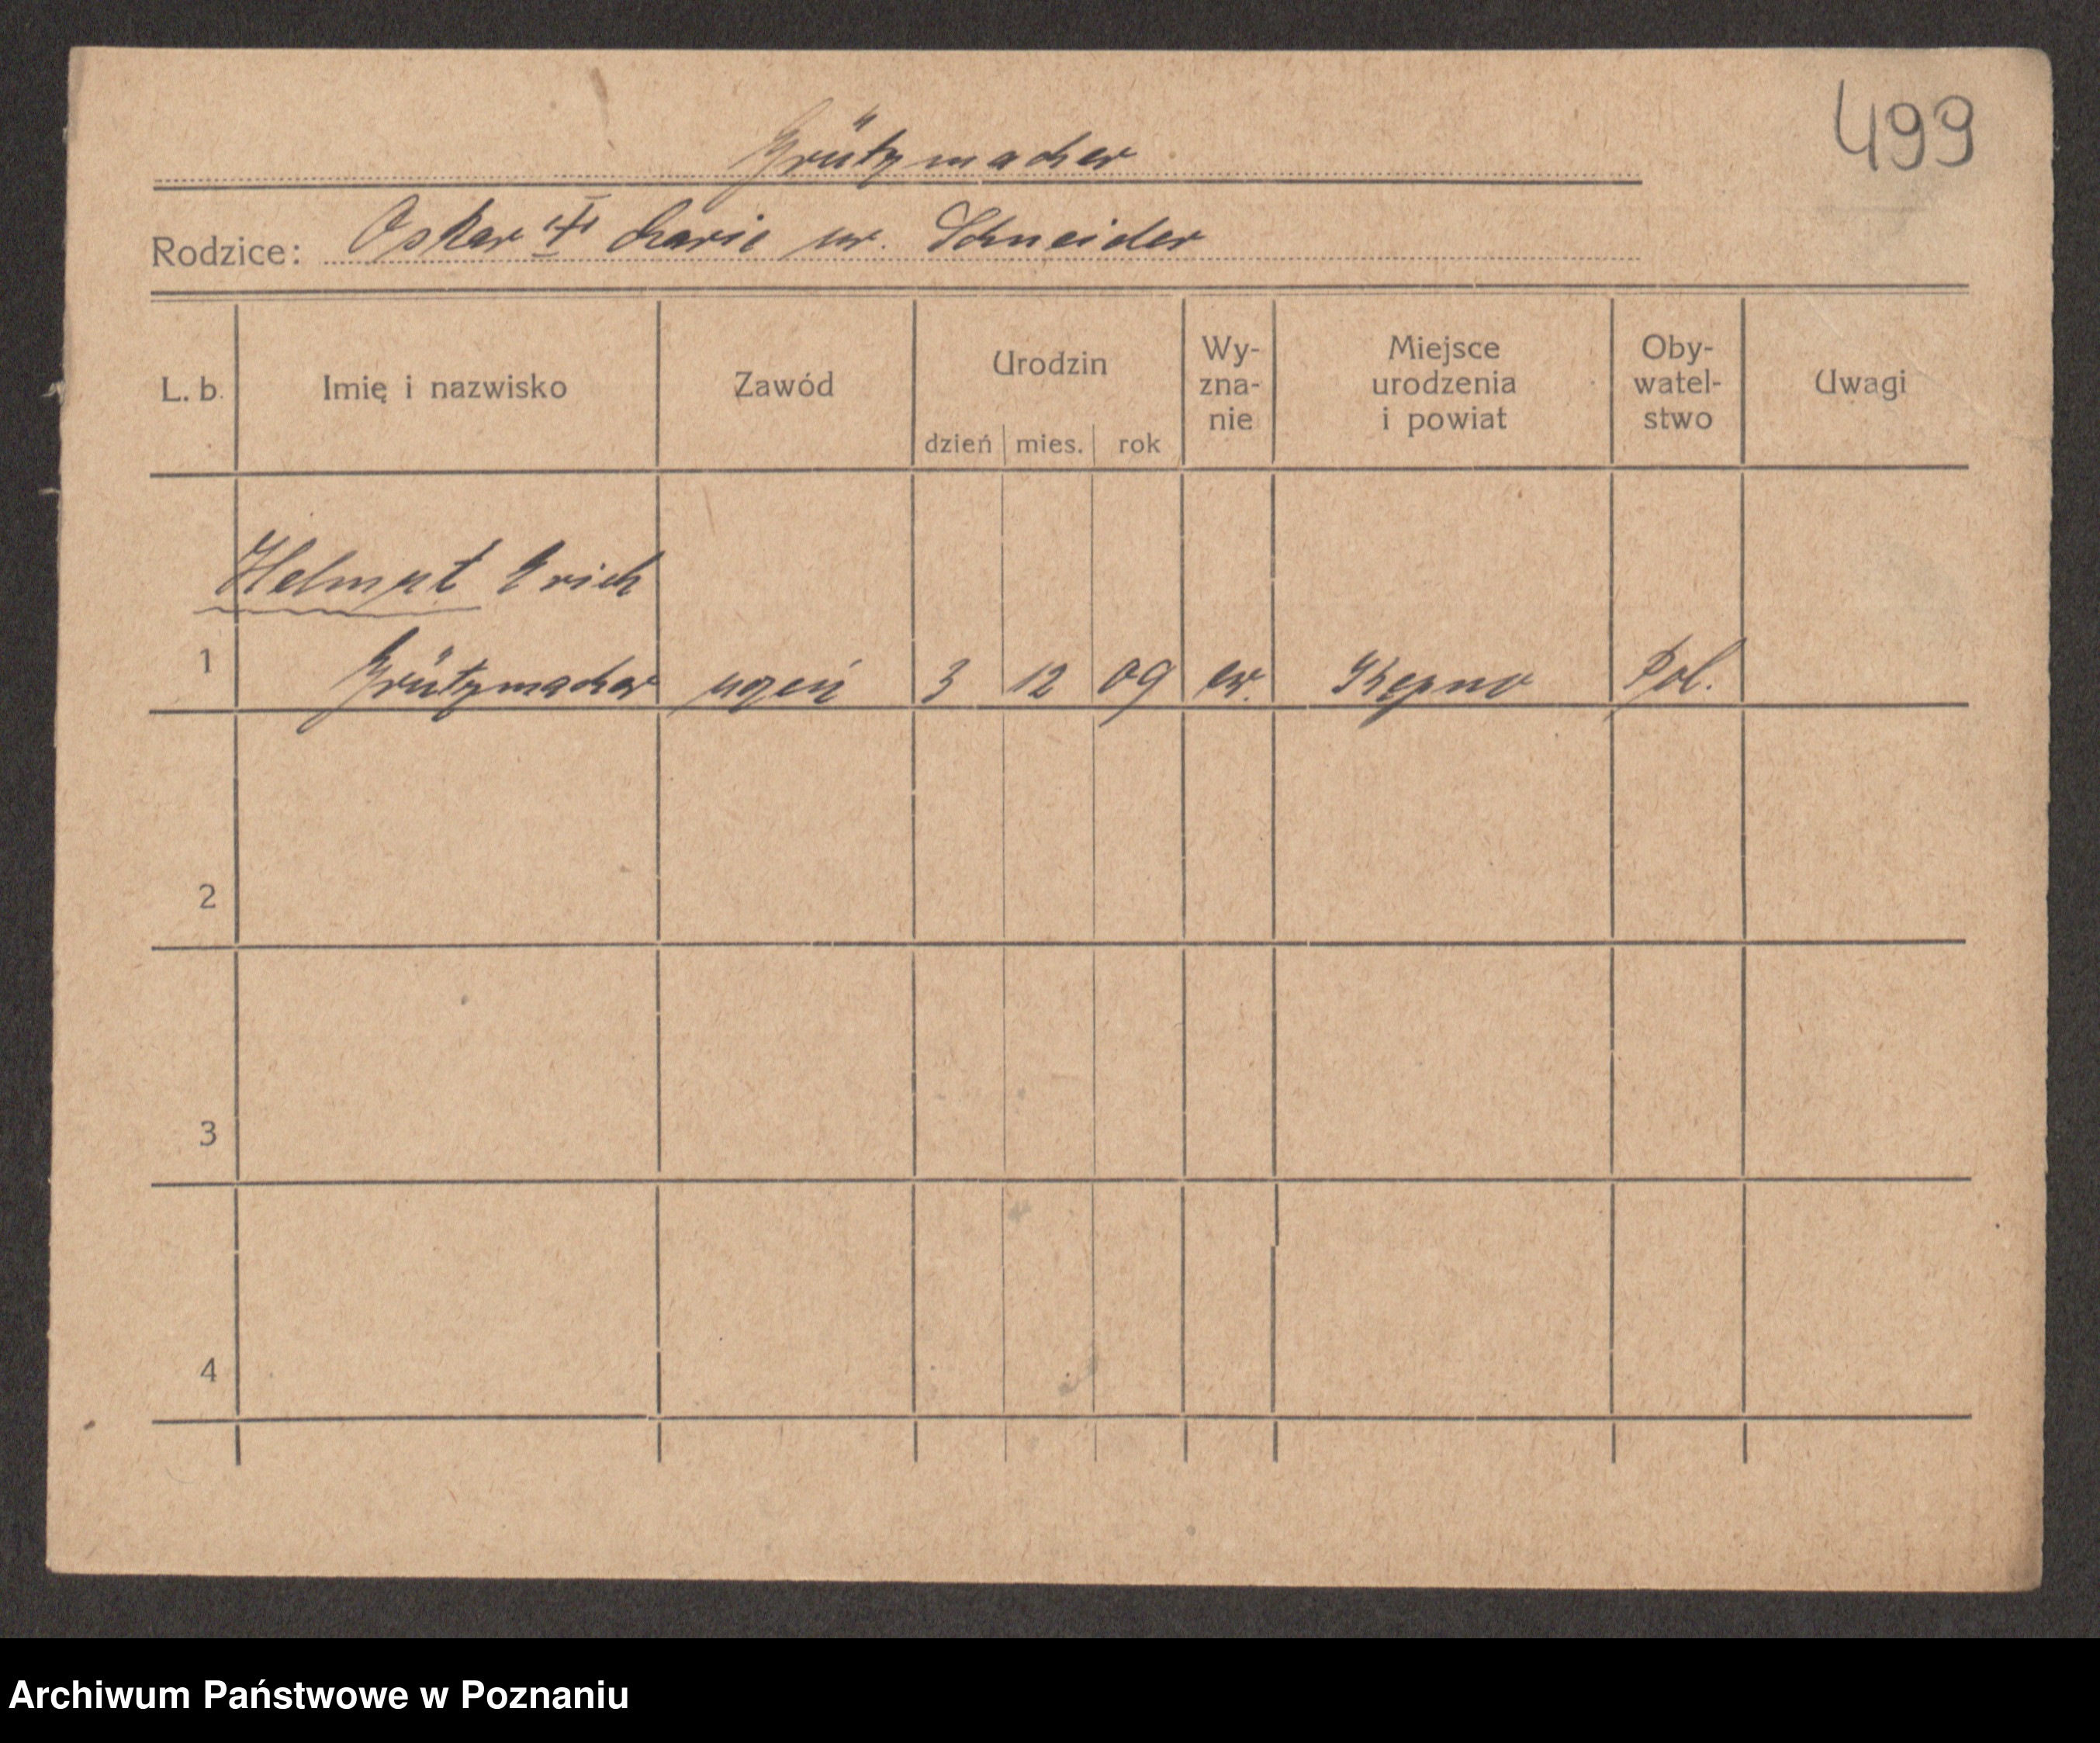 499
Grützmacher
Rodzice: Oskar Marie ur. Schneider
L. b. Imię i nazwisko Zawód Urodzin dzień mies. rok Wy-zna-nie Miejsce urodzenia i powiat Oby-watel-stwo Uwagi
Helmut Erich
1 Grützmacher uczeń 3 12 09 ew. Kępno Pol.
2
3
4
Archiwum Państwowe w Poznaniu